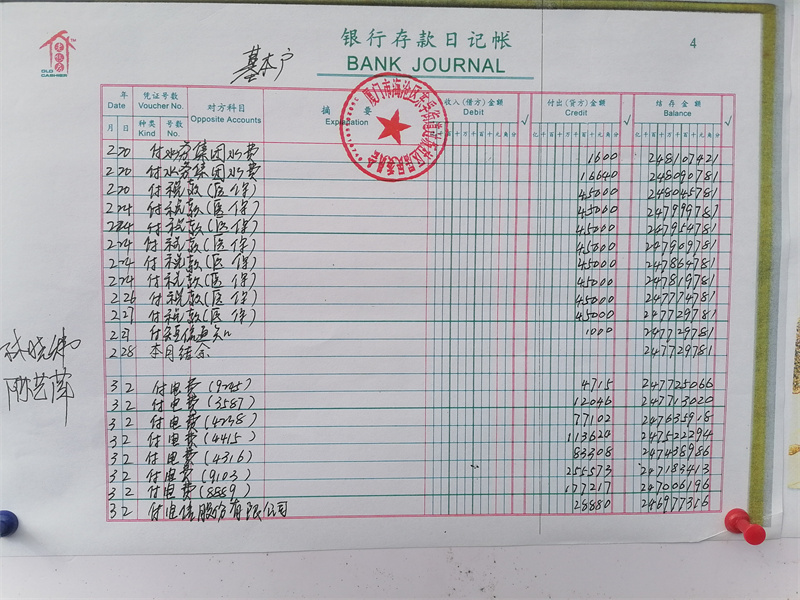 OLD CASHIER
基本户
银行存款日记帐
BANK JOURNAL
4
年 Date 凭证号数 Voucher No. 对方科目 Opposite Accounts 摘要 Explanation 收入(借方)金额 Debit √ 付出(贷方)金额 Credit √ 结存金额 Balance √
月 日 种类 Kind 号数 No. 亿千百十万千百十元角分 亿千百十万千百十元角分
2 20 付水务集团水费 1600 248107421
2 20 付水务集团水费 16640 248090781
2 20 付税款(医保) 45000 248045781
2 24 付税款(医保) 45000 247999781
2 24 付税款(医保) 45000 247954781
2 24 付税款(医保) 45000 247909781
2 24 付税款(医保) 45000 247864781
2 24 付税款(医保) 45000 247819781
2 26 付税款(医保) 45000 247774781
2 27 付税款(医保) 45000 247729781
2 27 付短信通知 1000 247729781
2 28 本月结余 247729781
3 2 付电费(9245) 4715 247725066
3 2 付电费(3587) 12046 247713020
3 2 付电费(4238) 77102 247635918
3 2 付电费(4415) 113624 247522294
3 2 付电费(4316) 83308 247438986
3 2 付电费(9103) 255573 247183413
3 2 付电费(8889) 177217 247006196
3 2 付电信股份有限公司 28880 246977316